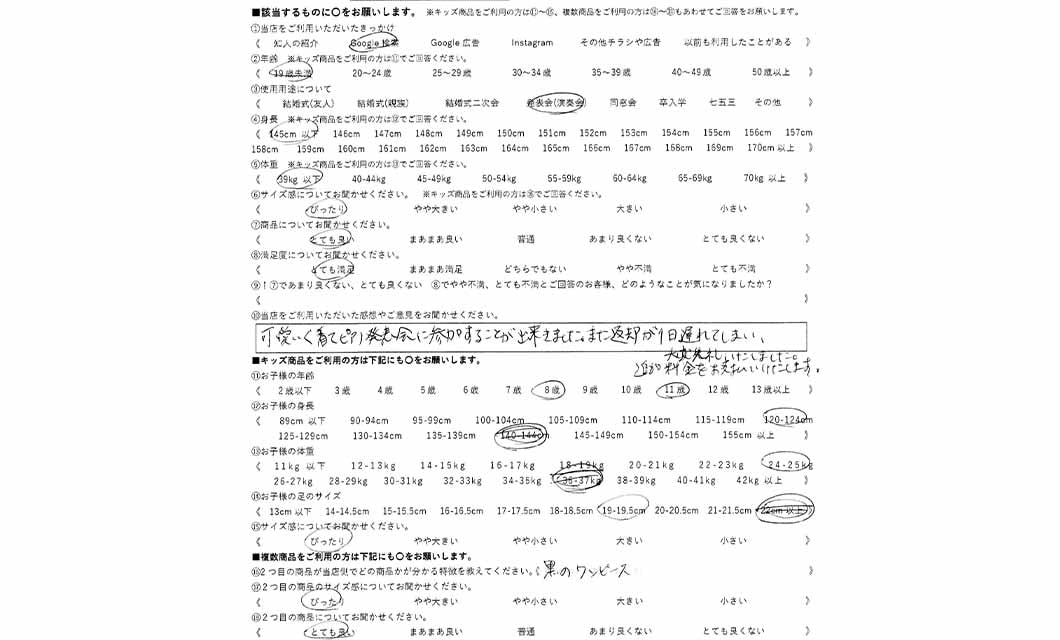 ■該当するものに〇をお願いします。 ※キッズ商品をご利用の方は⑪～⑮、複数商品をご利用の方は⑯～⑱もあわせてご回答をお願いします。
①当店をご利用いただいたきっかけ
《 知人の紹介 Google 検索 Google 広告 Instagram その他チラシや広告 以前も利用したことがある 》
②年齢 ※キッズ商品をご利用の方は⑪でご回答ください。
《 19歳未満 20～24歳 25～29歳 30～34歳 35～39歳 40～49歳 50歳以上 》
③使用用途について
《 結婚式(友人) 結婚式(親族) 結婚式二次会 発表会(演奏会) 同窓会 卒入学 七五三 その他 》
④身長 ※キッズ商品をご利用の方は⑫でご回答ください。
《 145cm 以下 146cm 147cm 148cm 149cm 150cm 151cm 152cm 153cm 154cm 155cm 156cm 157cm
158cm 159cm 160cm 161cm 162cm 163cm 164cm 165cm 166cm 167cm 168cm 169cm 170cm以上 》
⑤体重 ※キッズ商品をご利用の方は⑬でご回答ください。
《 39kg 以下 40-44kg 45-49kg 50-54kg 55-59kg 60-64kg 65-69kg 70kg 以上 》
⑥サイズ感についてお聞かせください。 ※キッズ商品をご利用の方は⑮でご回答ください。
《 ぴったり やや大きい やや小さい 大きい 小さい 》
⑦商品についてお聞かせください。
《 とても良い まあまあ良い 普通 あまり良くない とても良くない 》
⑧満足度についてお聞かせください。
《 とても満足 まあまあ満足 どちらでもない やや不満 とても不満 》
⑨！⑦であまり良くない、とても良くない ⑧でやや不満、とても不満とご回答のお客様、どのようなことが気になりましたか？
《 》
⑩当店をご利用いただいた感想やご意見をお聞かせください。
可愛いく着てピアノ発表会に参加することが出来ました。また返却が1日遅れてしまい、
大変失礼いたしました。
追加料金をお支払いいたします。
■キッズ商品をご利用の方は下記にも〇をお願いします。
⑪お子様の年齢
《 2歳以下 3歳 4歳 5歳 6歳 7歳 8歳 9歳 10歳 11歳 12歳 13歳以上 》
⑫お子様の身長
《 89cm 以下 90-94cm 95-99cm 100-104cm 105-109cm 110-114cm 115-119cm 120-124cm
125-129cm 130-134cm 135-139cm 140-144cm 145-149cm 150-154cm 155cm 以上 》
⑬お子様の体重
《 11kg 以下 12-13kg 14-15kg 16-17kg 18-19kg 20-21kg 22-23kg 24-25kg
26-27kg 28-29kg 30-31kg 32-33kg 34-35kg 36-37kg 38-39kg 40-41kg 42kg 以上 》
⑭お子様の足のサイズ
《 13cm 以下 14-14.5cm 15-15.5cm 16-16.5cm 17-17.5cm 18-18.5cm 19-19.5cm 20-20.5cm 21-21.5cm 22cm 以上 》
⑮サイズ感についてお聞かせください
《 ぴったり やや大きい やや小さい 大きい 小さい 》
■複数商品をご利用の方は下記にも〇をお願いします。
⑯2つ目の商品が当店側でどの商品かが分かる特徴を教えてください。《 黒のワンピース 》
⑰2つ目の商品のサイズ感についてお聞かせください。
《 ぴったり やや大きい やや小さい 大きい 小さい 》
⑱2つ目の商品についてお聞かせください。
《 とても良い まあまあ良い 普通 あまり良くない とても良くない 》